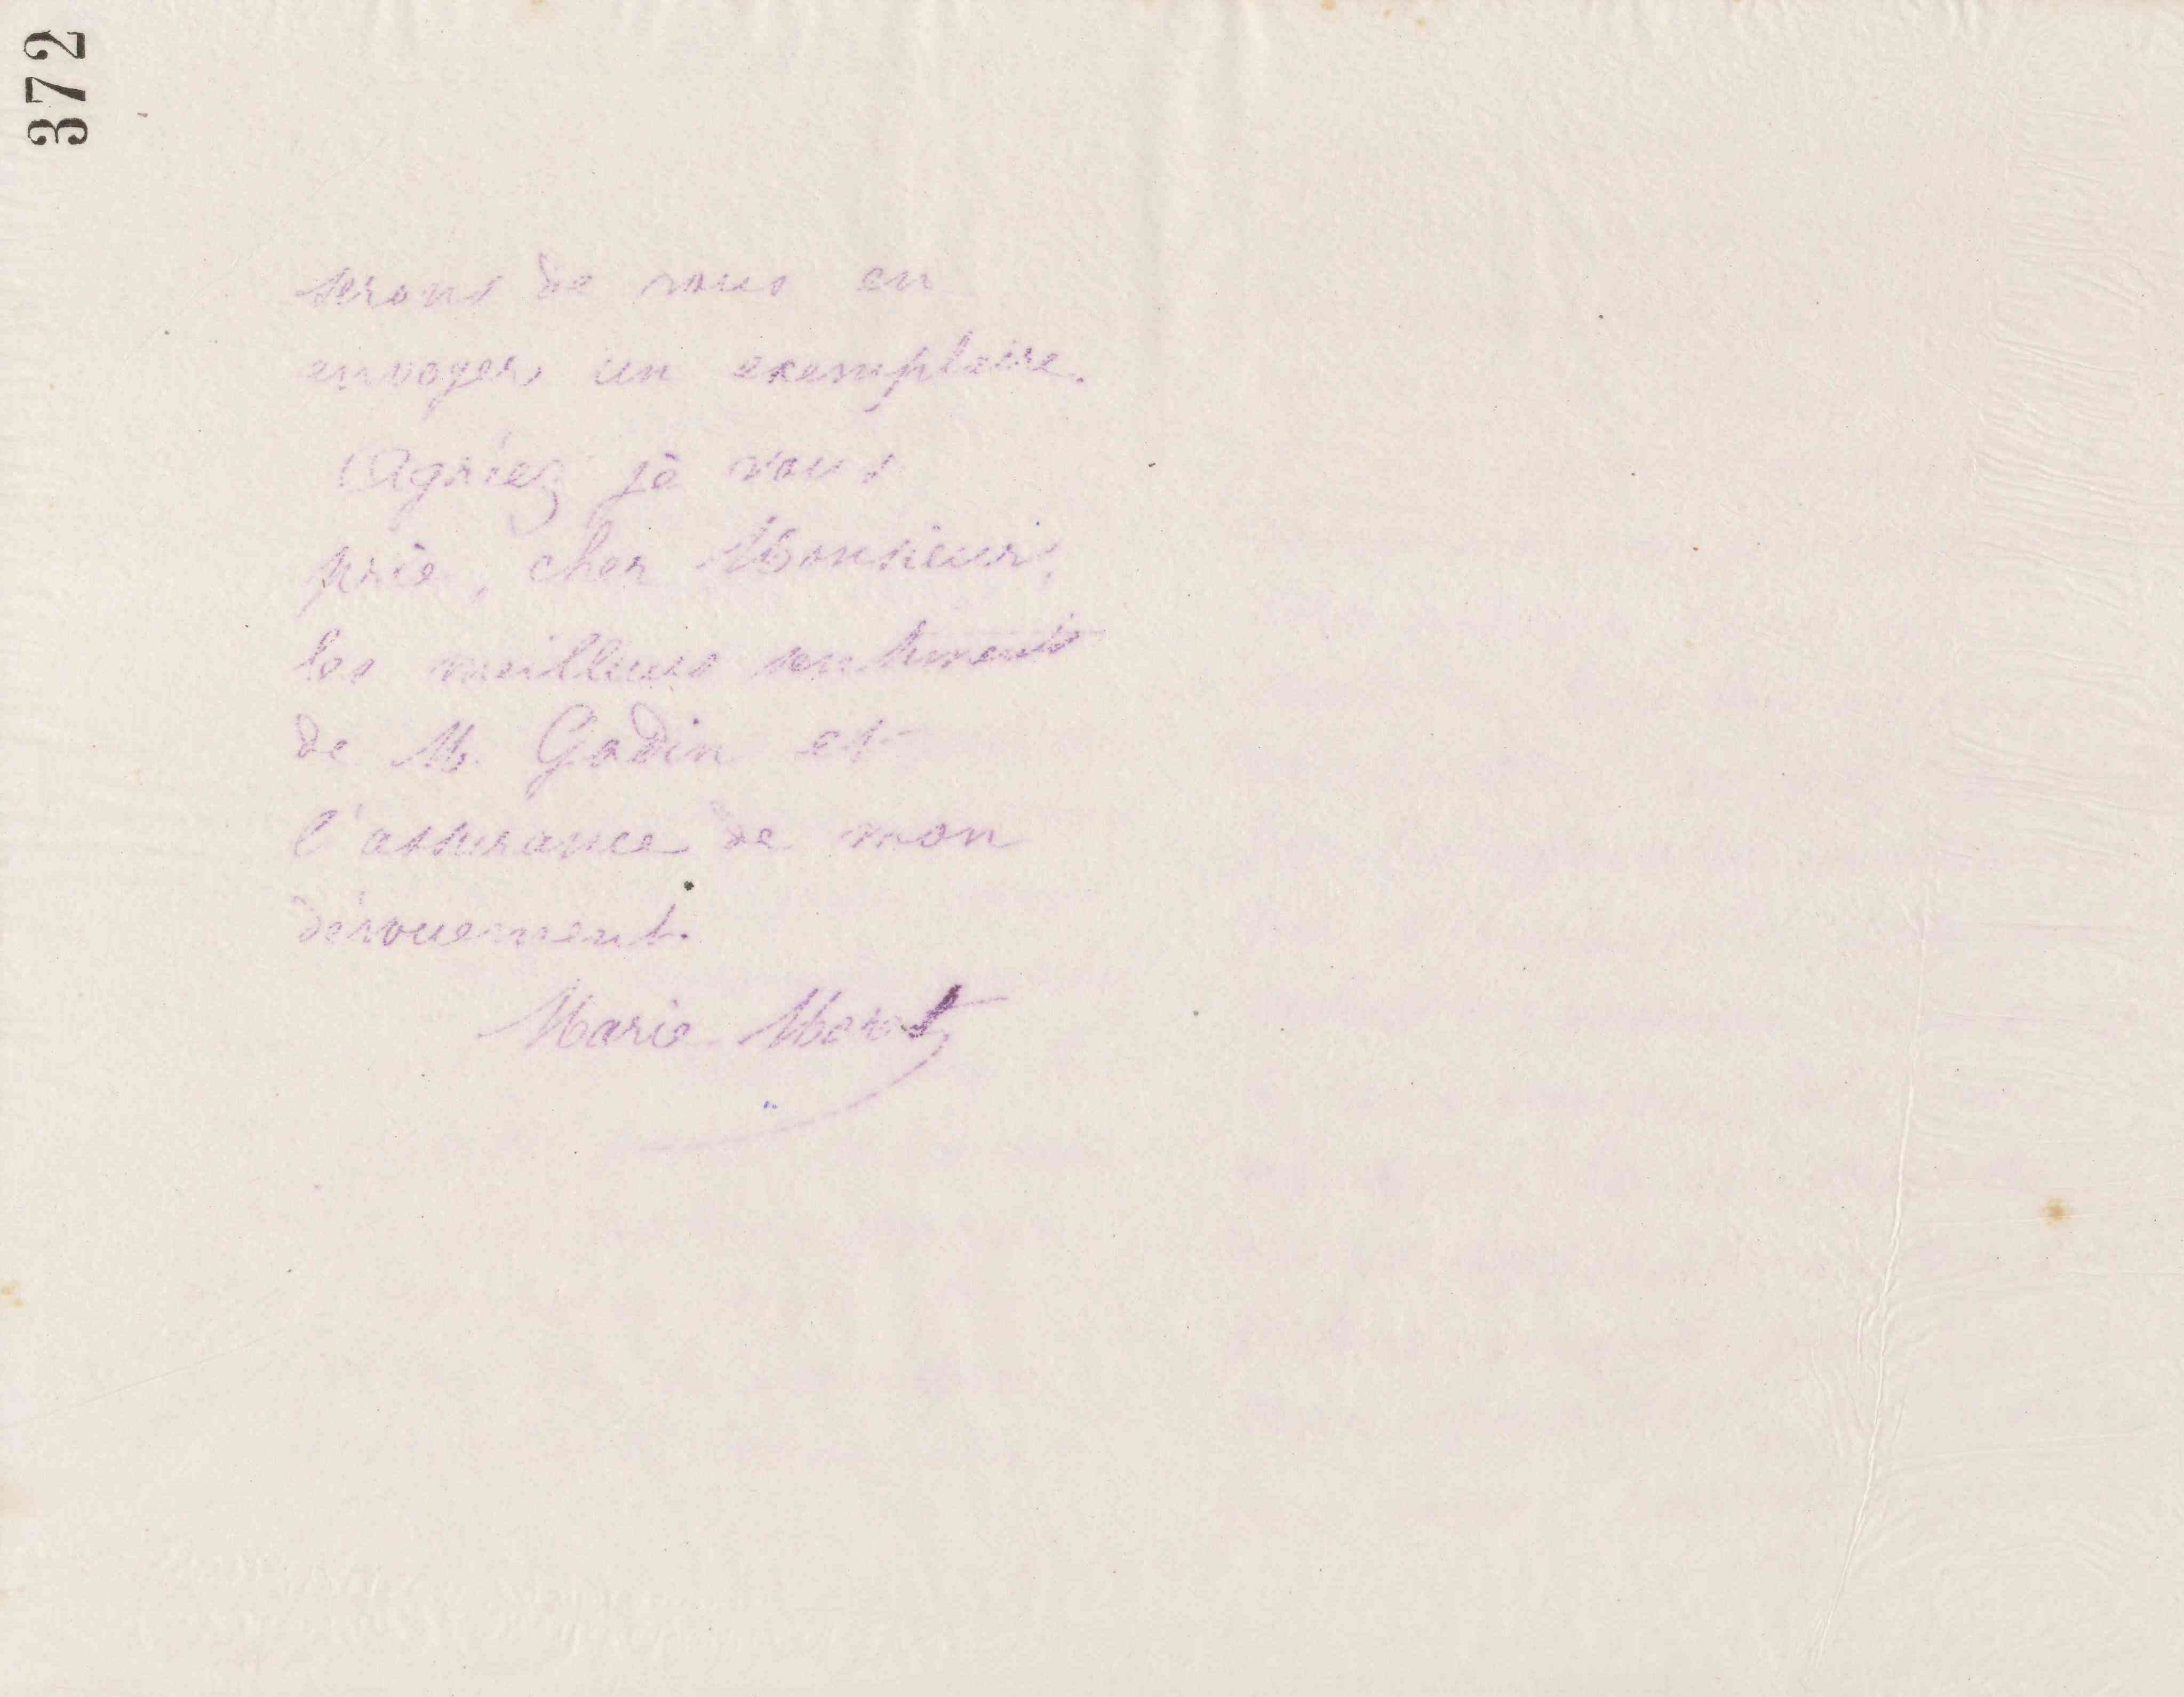 372
serons de vous en
envoyer un exemplaire.
Agréez je vous
prie, cher Monsieur,
les meilleurs sentiments
de M. Godin et
l'assurance de mon
dévouement.
Marie Moret